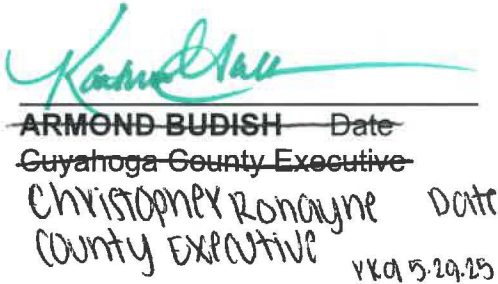 ARMOND BUDISH Date
Cuyahoga County Executive
Christopher Ronayne Date
County Executive
5.29.25